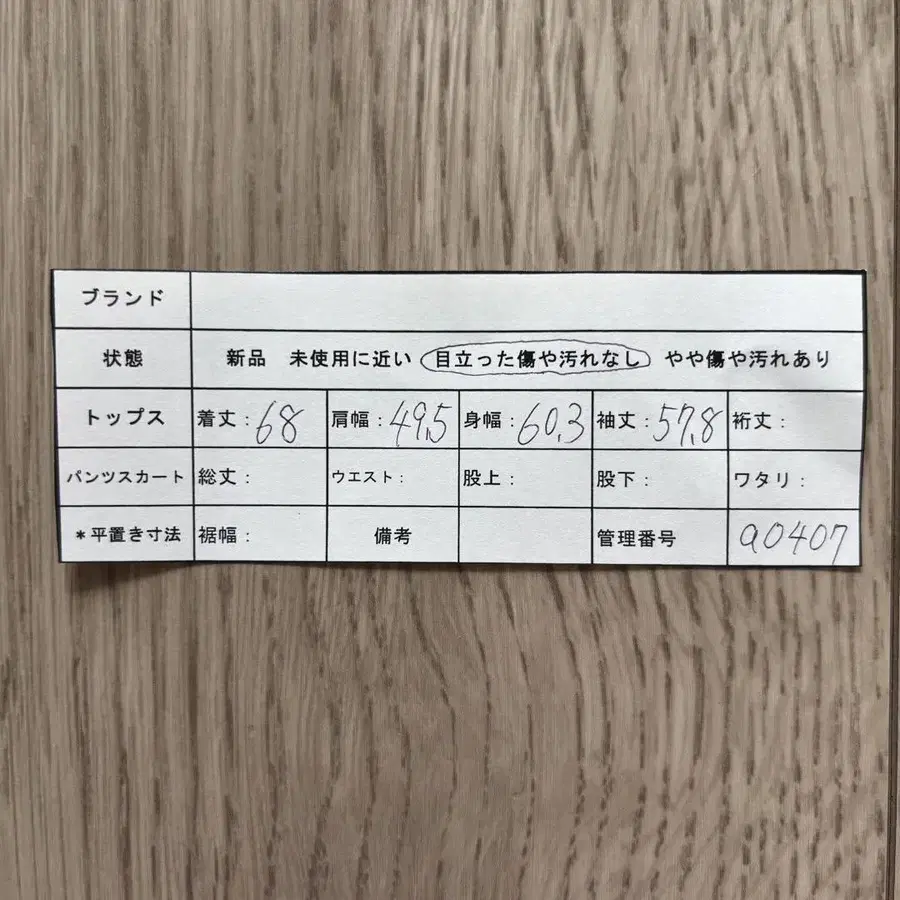 ブランド
状態 新品 未使用に近い 目立った傷や汚れなし やや傷や汚れあり
トップス 着丈：68 肩幅：49.5 身幅：60.3 袖丈：57.8 裄丈：
パンツスカート 総丈： ウエスト： 股上： 股下： ワタリ：
＊平置き寸法 裾幅： 備考 管理番号 a0407